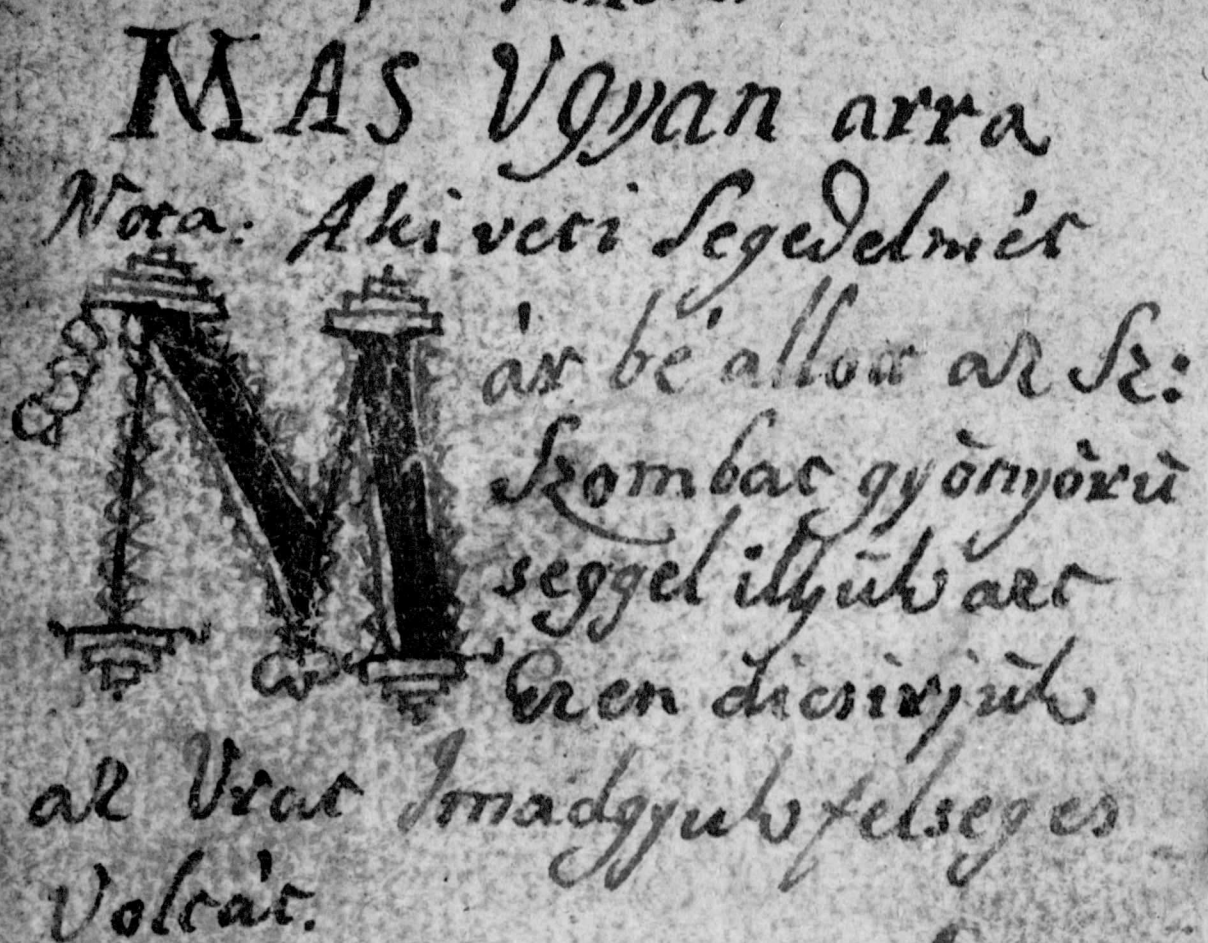 MAS Ugyan arra
Nota: Aki veti Segedelmét
Már bé állott az Sz:
Szombat gyönyörü
seggel illyük azt
Ezen dicsirjük
az Urat Imadgyuk felseges
Voltát.